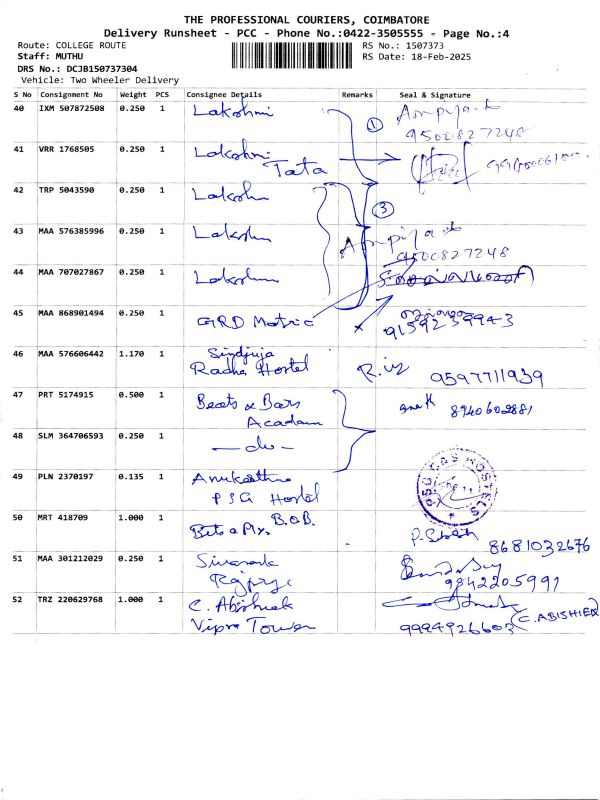 THE PROFESSIONAL COURIERS, COIMBATORE
Delivery Runsheet - PCC - Phone No.:0422-3505555 - Page No.:4
Route: COLLEGE ROUTE RS No.: 1507373
Staff: MUTHU RS Date: 18-Feb-2025
DRS No.: DCJB150737304
Vehicle: Two Wheeler Delivery
S No Consignment No Weight PCS Consignee Details Remarks Seal & Signature
40 IXM 507872508 0.250 1 Lakshmi 1
9500827248
41 VRR 1768505 0.250 1 Lakshmi
Tata
42 TRP 5043590 0.250 1 Lakshm 3
43 MAA 576385996 0.250 1 Lakshm
9500827248
44 MAA 707027867 0.250 1 Lakshm
45 MAA 868901494 0.250 1 GRD Matric
9159239943
46 MAA 576606442 1.170 1 Sindjuja
Radha Hostel 9597711939
47 PRT 5174915 0.500 1 Beats & Bars
Academ 8940602881
48 SLM 364706593 0.250 1 - do -
49 PLN 2370197 0.135 1
PSG Hostel
PSG CAS HOSTELS
50 MRT 418709 1.000 1 B.O.B.
8681032676
51 MAA 301212029 0.250 1
9842205991
52 TRZ 220629768 1.000 1 C. Abishiek
Vipra Tower 9994926603 (C.ABISHIEK)